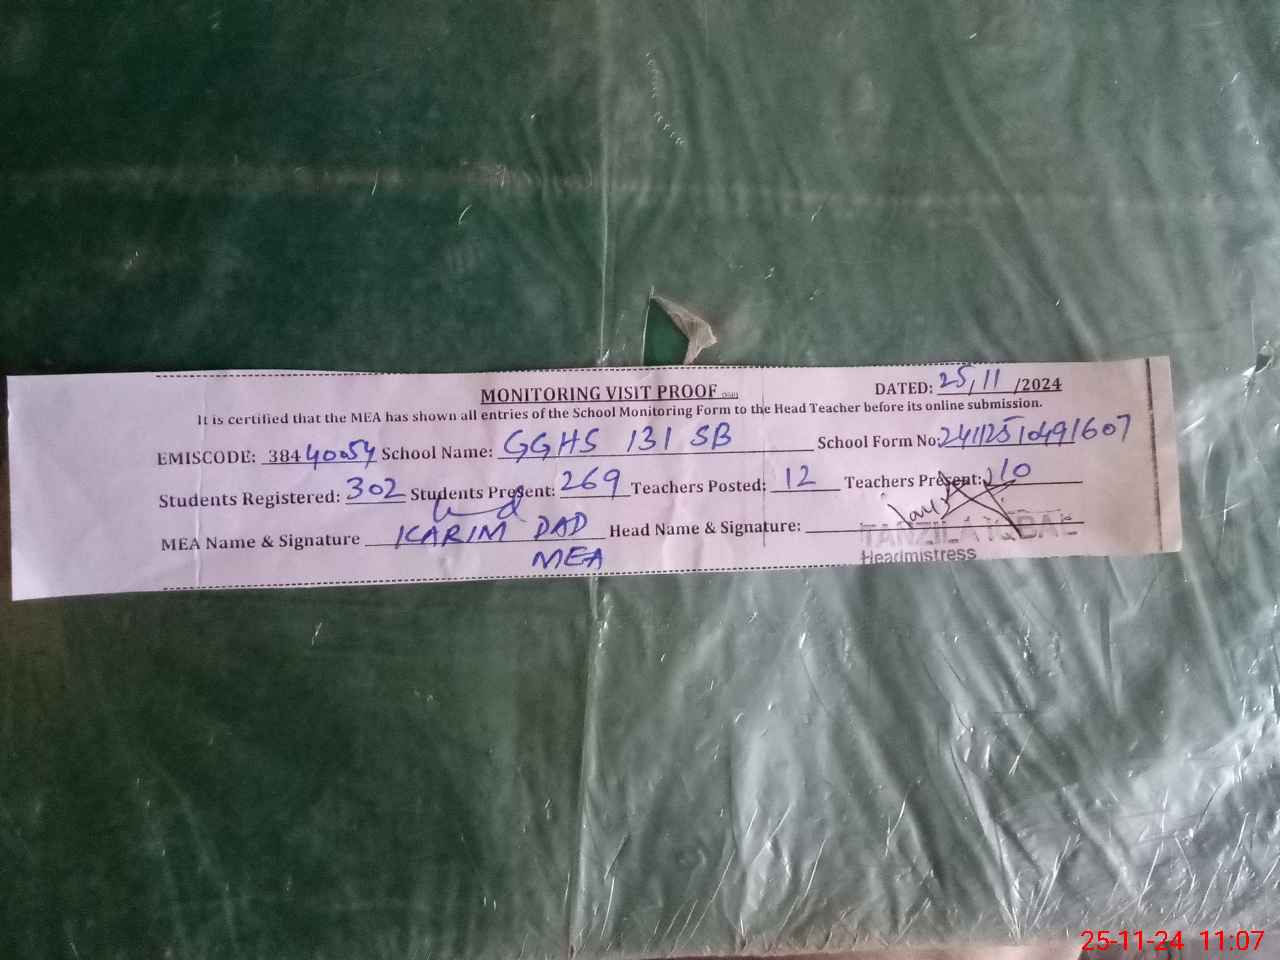 MONITORING VISIT PROOF
DATED: 25/11/2024
It is certified that the MEA has shown all entries of the School Monitoring Form to the Head Teacher before its online submission.
EMISCODE: 38440054 School Name: GGHS 131 SB School Form No: 24112510491607
Students Registered: 302 Students Present: 269 Teachers Posted: 12 Teachers Present: 10
MEA Name & Signature KARIM DAD Head Name & Signature: TANZILA IQBAL
MEA Headmistress
25-11-24 11:07